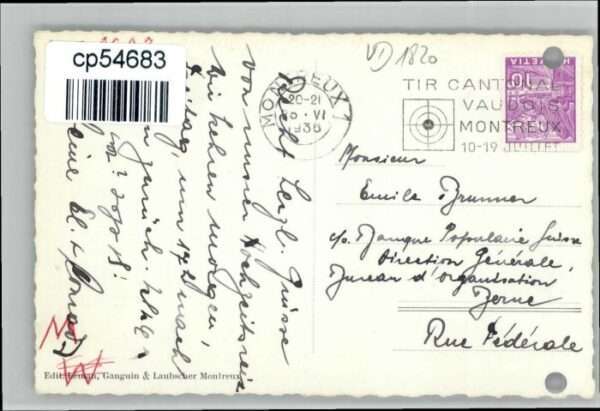 cp54683
VD 1820
MONTREUX 1
20-21
VI
1936
TIR CANTONAL
VAUDOIS
MONTREUX
10-19 JUILLET
HELVETIA
10
Recht herzl. Grüsse
von unserer Hochzeitsreise
Wir kehren morgen,
Freitag, um 17 nach
Zürich.
Monsieur
Emile Brunner
c/o. Banque Populaire Suisse
Direction Générale,
Bureau d'Organisation
Berne
Rue Fédérale
Edit. Ganguin & Laubscher Montreux